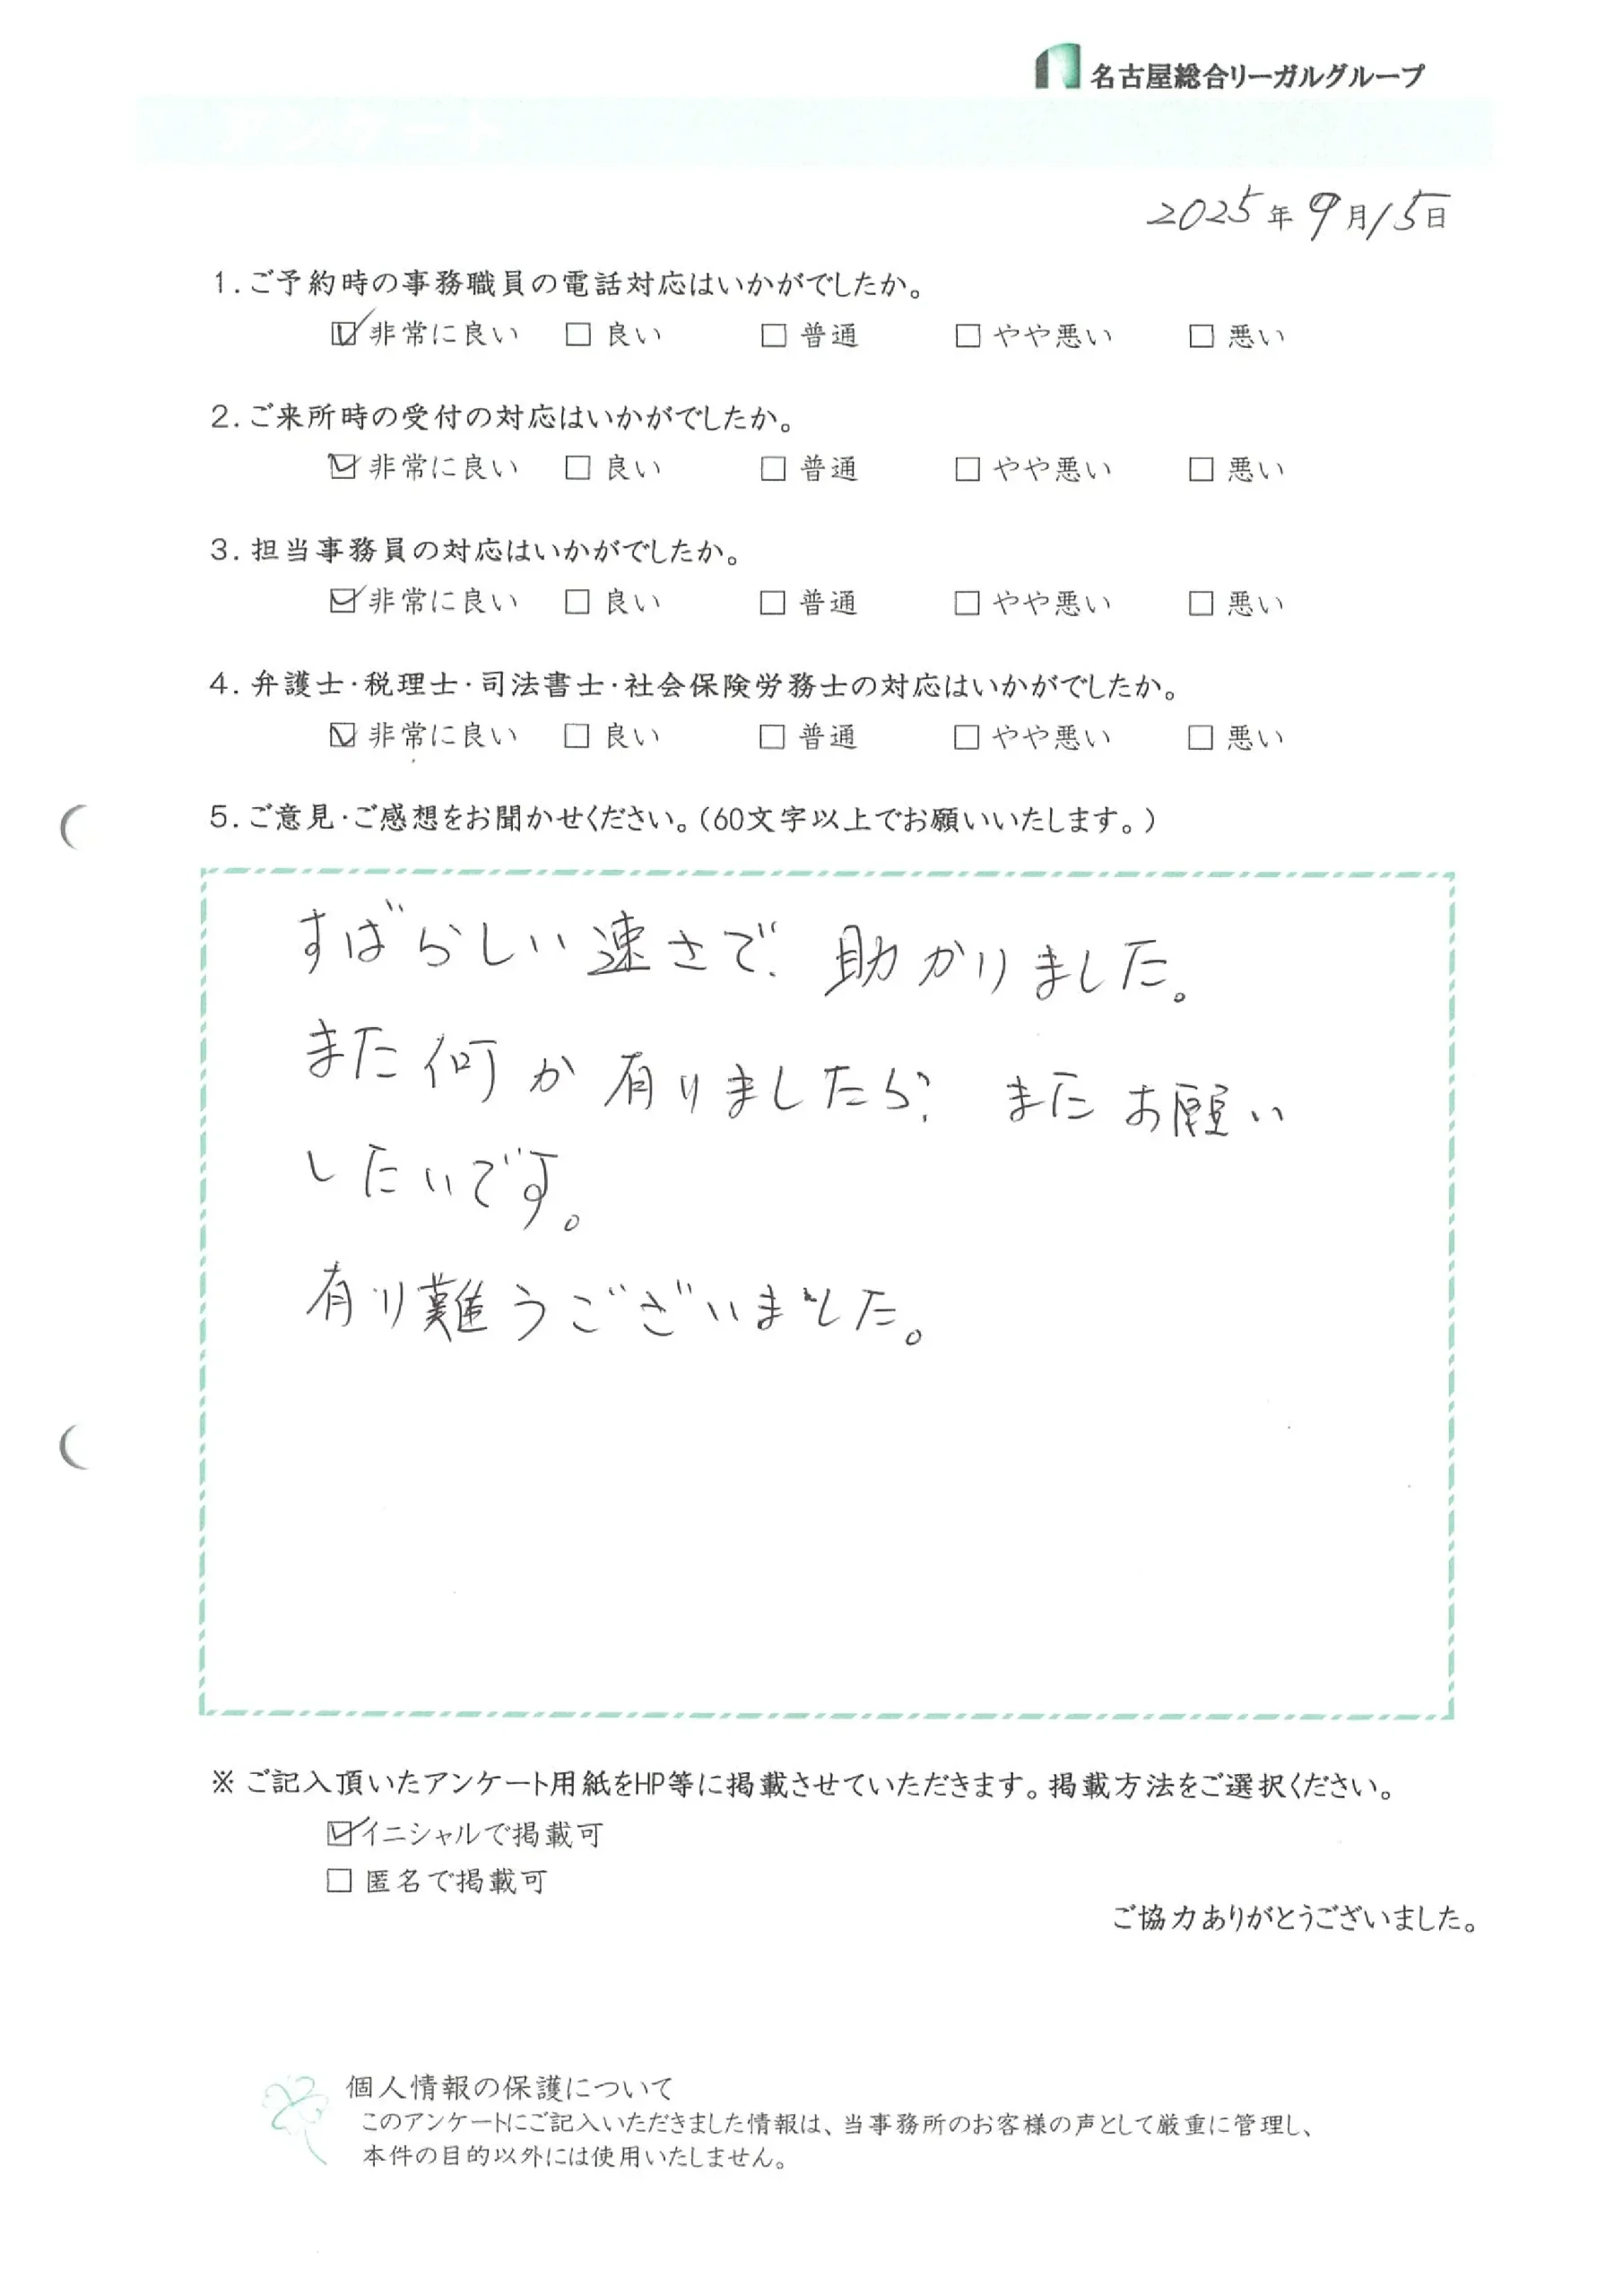 名古屋総合リーガルグループ
アンケート
2025年9月15日
1.ご予約時の事務職員の電話対応はいかがでしたか。
☑非常に良い □ 良い □ 普通 □ やや悪い □ 悪い
2.ご来所時の受付の対応はいかがでしたか。
☑非常に良い □ 良い □ 普通 □ やや悪い □ 悪い
3.担当事務員の対応はいかがでしたか。
☑非常に良い □ 良い □ 普通 □ やや悪い □ 悪い
4.弁護士・税理士・司法書士・社会保険労務士の対応はいかがでしたか。
☑非常に良い □ 良い □ 普通 □ やや悪い □ 悪い
5.ご意見・ご感想をお聞かせください。(60文字以上でお願いいたします。)
すばらしい速さで、助かりました。
また何か有りましたら、またお願い
したいです。
有り難うございました。
※ ご記入頂いたアンケート用紙をHP等に掲載させていただきます。掲載方法をご選択ください。
☑イニシャルで掲載可
□ 匿名で掲載可
ご協力ありがとうございました。
個人情報の保護について
このアンケートにご記入いただきました情報は、当事務所のお客様の声として厳重に管理し、
本件の目的以外には使用いたしません。